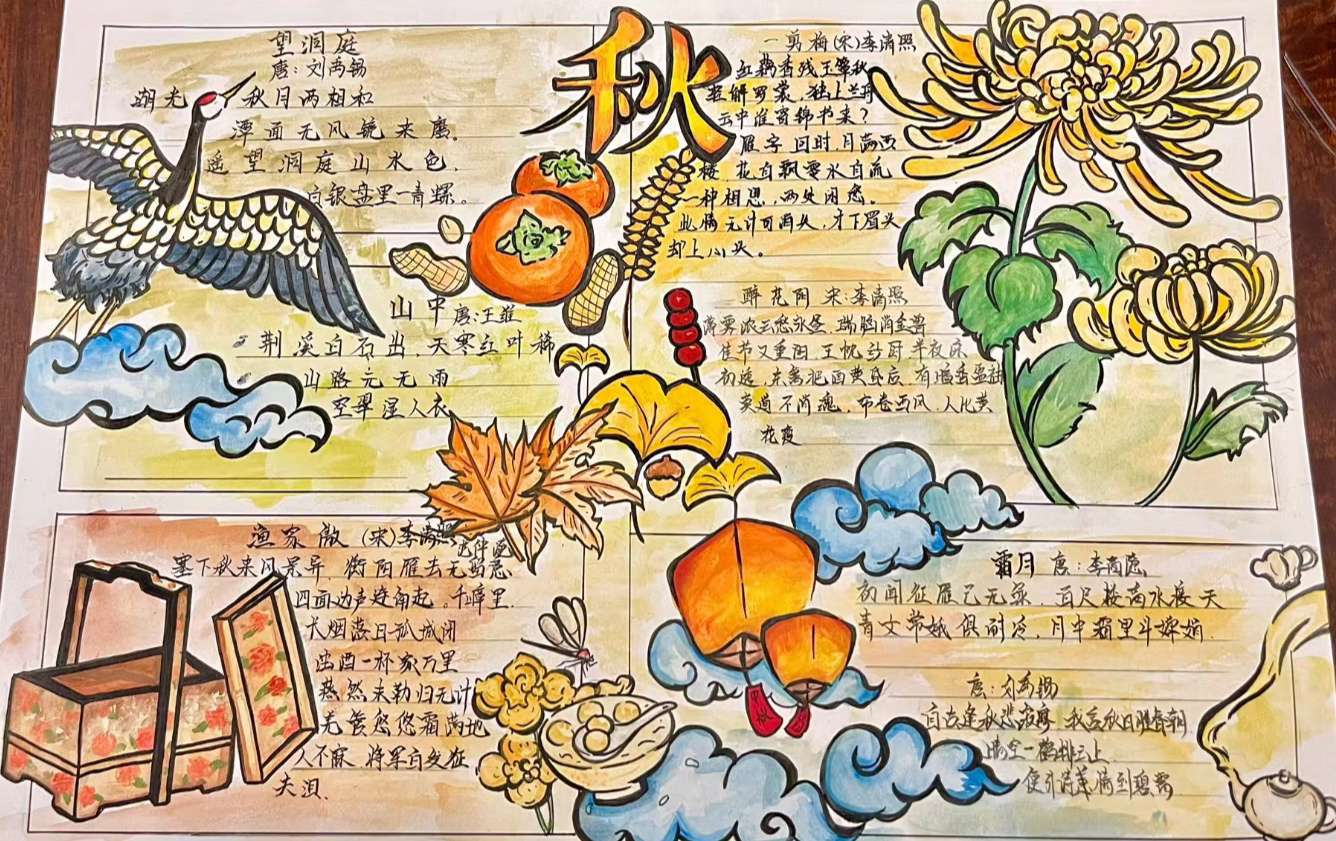 秋
望洞庭
唐:刘禹锡
湖光 秋月两相和
潭面无风镜未磨。
遥望洞庭山水色,
白银盘里一青螺。
山中 唐:王维
荆溪白石出,天寒红叶稀
山路元无雨
空翠湿人衣
一剪梅(宋)李清照
红藕香残玉簟秋
轻解罗裳,独上兰舟
云中谁寄锦书来?
雁字回时,月满西
楼,花自飘零水自流
一种相思,两处闲愁。
此情无计可消除,才下眉头
却上心头。
醉花阴 宋:李清照
薄雾浓云愁永昼 瑞脑消金兽
佳节又重阳,玉枕纱厨,半夜凉
初透,东篱把酒黄昏后,有暗香盈袖
莫道不消魂,帘卷西风,人比黄
花瘦
渔家傲(宋)李清照
塞下秋来风景异,衡阳雁去无留意
四面边声连角起。千嶂里,
长烟落日孤城闭
浊酒一杯家万里
燕然未勒归无计
羌管悠悠霜满地
人不寐,将军白发征
夫泪.
霜月 唐:李商隐
初闻征雁已无蝉 百尺楼高水接天
青女常娥俱耐冷,月中霜里斗婵娟.
唐:刘禹锡
自古逢秋悲寂寥 我言秋日胜春朝
晴空一鹤排云上
便引诗情到碧霄